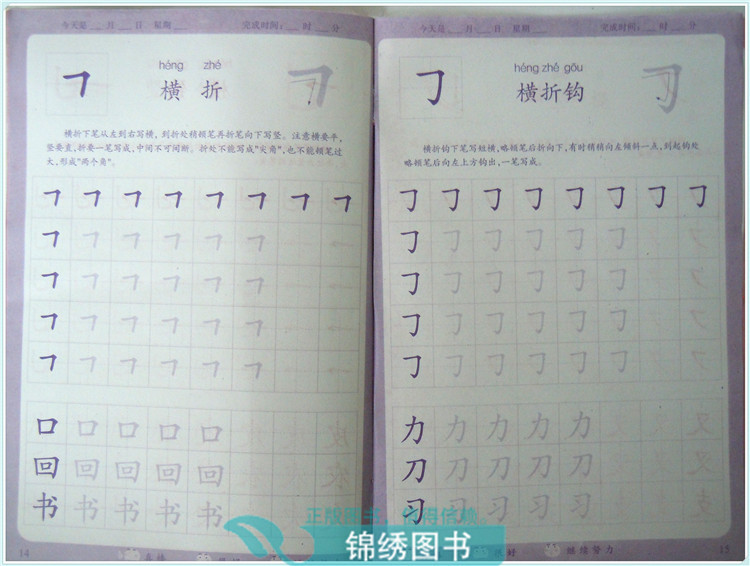 今天是 月 日 星期 完成时间: 时 分
héng zhé
横 折
横折下笔从左到右写横,到折处稍顿笔再折笔向下写竖。注意横要平,
竖要直,折要一笔写成,中间不可间断。折处不能写成"尖角",也不能顿笔过
大,形成"两个角"。
口 口 口 口 口
回 回 回 回 回
书 书 书 书 书
14
今天是 月 日 星期 完成时间: 时 分
héng zhé gōu
横折钩
横折钩下笔写短横,略顿笔后折向下,有时稍稍向左倾斜一点,到起钩处
略顿笔后向左上方钩出,一笔写成。
力 力 力 力 力
刀 刀 刀 刀 刀
习 习 习 习 习
继续努力
15
正版图书,值得信赖。
锦绣图书